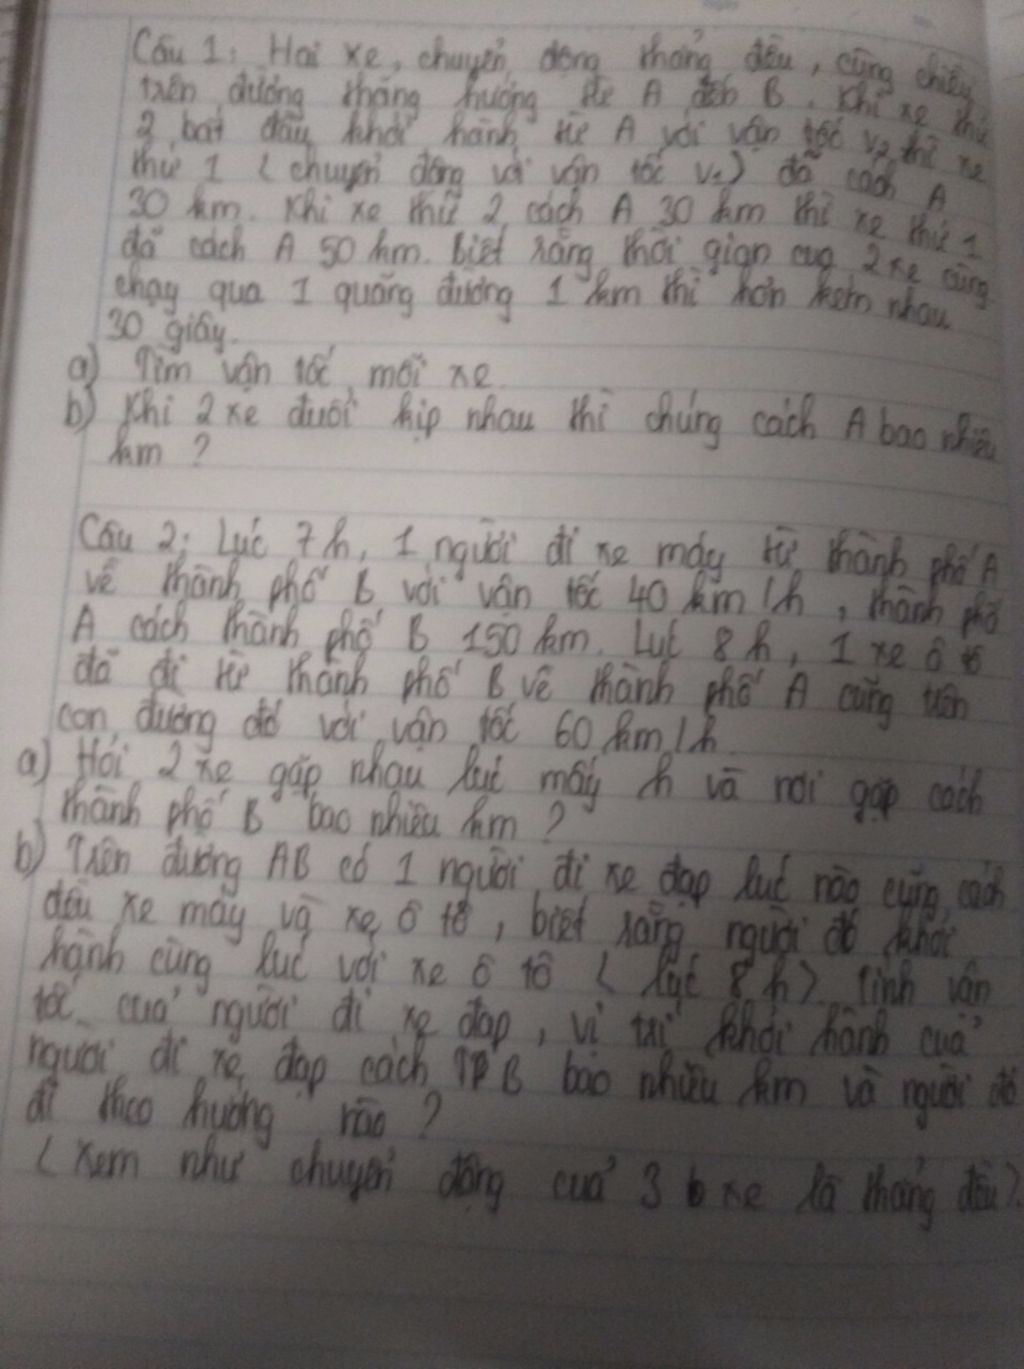 Câu 1: Hai xe, chuyển động thẳng đều, cùng chiều
trên đường thẳng hướng từ A đến B. Khi xe thứ
2 bắt đầu khởi hành từ A với vận tốc v2 thì xe
thứ 1 (chuyển động với vận tốc v1) đã cách A
30 km. Khi xe thứ 2 cách A 30 km thì xe thứ 1
đã cách A 50 km. Biết rằng thời gian của 2 xe cùng
chạy qua 1 quãng đường 1 km thì hơn kém nhau
30 giây.
a) Tìm vận tốc mỗi xe.
b) Khi 2 xe đuổi kịp nhau thì chúng cách A bao nhiêu
km ?
Câu 2: Lúc 7 h, 1 người đi xe máy từ thành phố A
về thành phố B với vận tốc 40 km/h, thành phố
A cách thành phố B 150 km. Lúc 8 h, 1 xe ô tô
đã đi từ thành phố B về thành phố A cũng trên
con đường đó với vận tốc 60 km/h
a) Hỏi 2 xe gặp nhau lúc mấy h và nơi gặp cách
thành phố B bao nhiêu km ?
b) Trên đường AB có 1 người đi xe đạp lúc nào cũng cách
đều xe máy và xe ô tô, biết rằng người đó khởi
hành cùng lúc với xe ô tô (lúc 8 h). Tính vận
tốc của người đi xe đạp, vị trí khởi hành của
người đi xe đạp cách TP B bao nhiêu km và người đó
đi theo hướng nào ?
(Xem như chuyển động của 3 xe là thẳng đều).